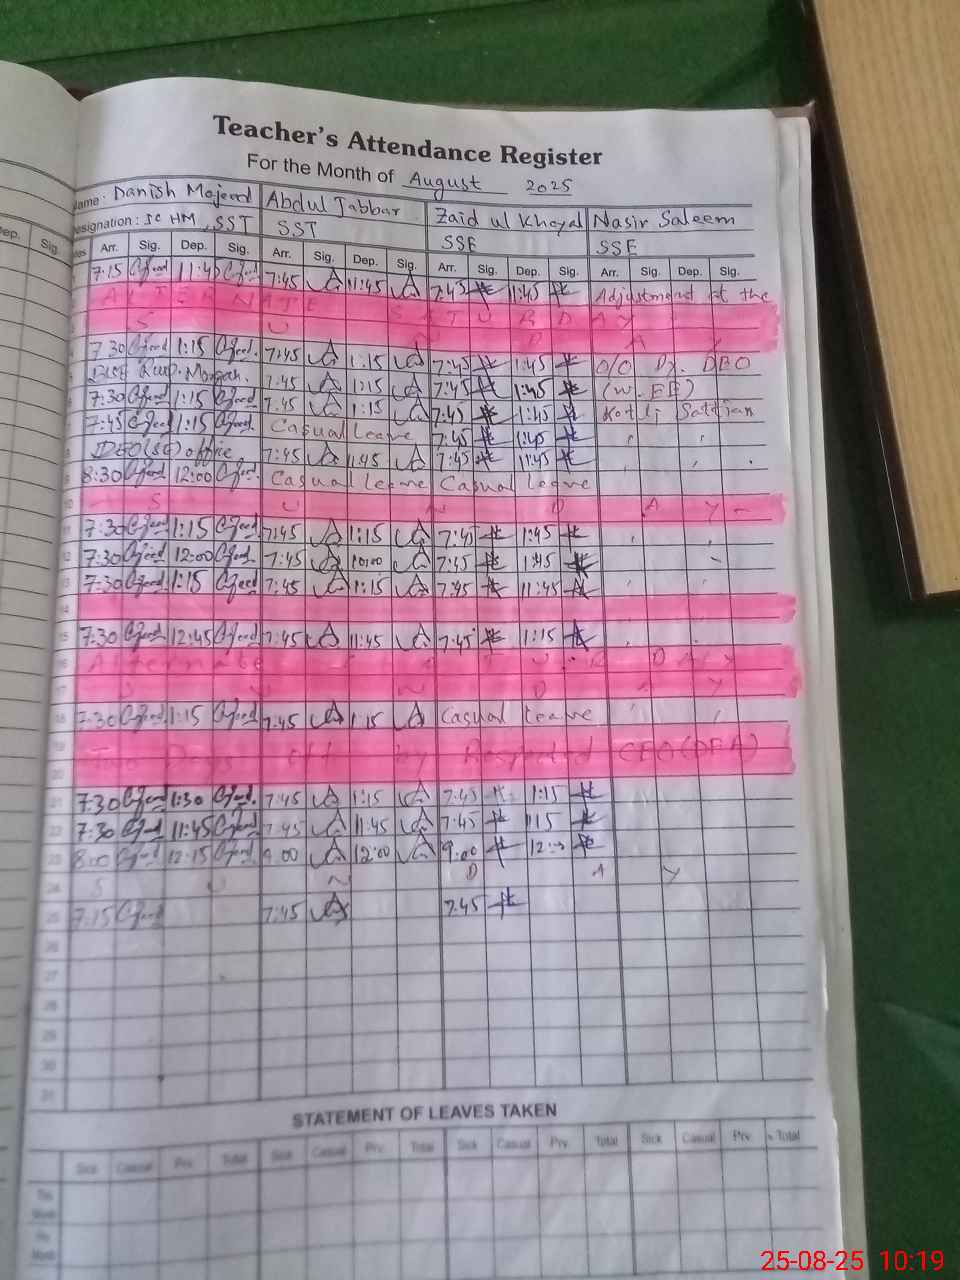 Teacher's Attendance Register
For the Month of August 2025
Name: Danish Majeed Abdul Jabbar Zaid ul Khayal Nasir Saleem
Designation: SC HM, SST SST SSE SSE
Dep. Sig. Arr. Sig. Dep. Sig. Arr. Sig. Dep. Sig. Arr. Sig. Dep. Sig. Arr. Sig. Dep. Sig.
7:15 11:45 7:45 11:45 7:45 11:45 Adjustment at the
ALTERNATE SATURDAY
SUNDAY
7:30 1:15 7:45 1:15 7:45 1:45 O/O Dy. DEO
7:45 1:15 7:45 1:45 (W.EE)
7:30 1:15 7:45 1:15 7:45 1:45 Kotli Sattian
7:45 1:15 Casual leave 7:45 1:45
DEO(SE) office 7:45 11:45 7:45 11:45
8:30 12:00 Casual leave Casual leave
10 SUNDAY
11 7:30 1:15 7:45 1:15 7:45 1:45
12 7:30 12:00 7:45 10:00 7:45 1:45
13 7:30 1:15 7:45 1:15 7:45 11:45
14
15 7:30 12:45 7:45 11:45 7:45 1:15
16 Alternate SATURDAY
17 SUNDAY
18 7:30 1:15 7:45 1:15 Casual leave
19 Two Days off by Respected CEO(DEA)
20
21 7:30 1:30 7:45 1:15 7:45 1:15
22 7:30 11:45 7:45 11:45 7:45 1:15
23 8:00 12:15 9:00 12:00 9:00
24 SUNDAY
25 7:15 7:45 7:45
26
27
28
29
30
31
STATEMENT OF LEAVES TAKEN
Sick Casual Prv. Total Sick Casual Prv. Total Sick Casual Prv. Total Sick Casual Prv. Total
This Month
Pre. Month
25-08-25 10:19